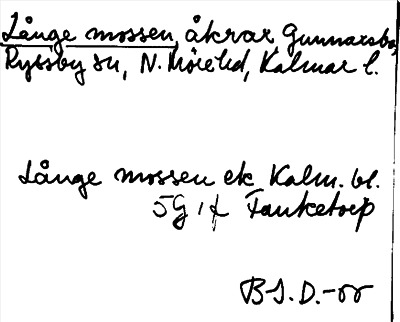 Långe mossen, åkrar, Gunnarsbo,
Ryssby sn, N. Möre hd, Kalmar l.
Långe mossen ek Kalm. bl.
5G 1f Tanketorp
B-S. D.-rr